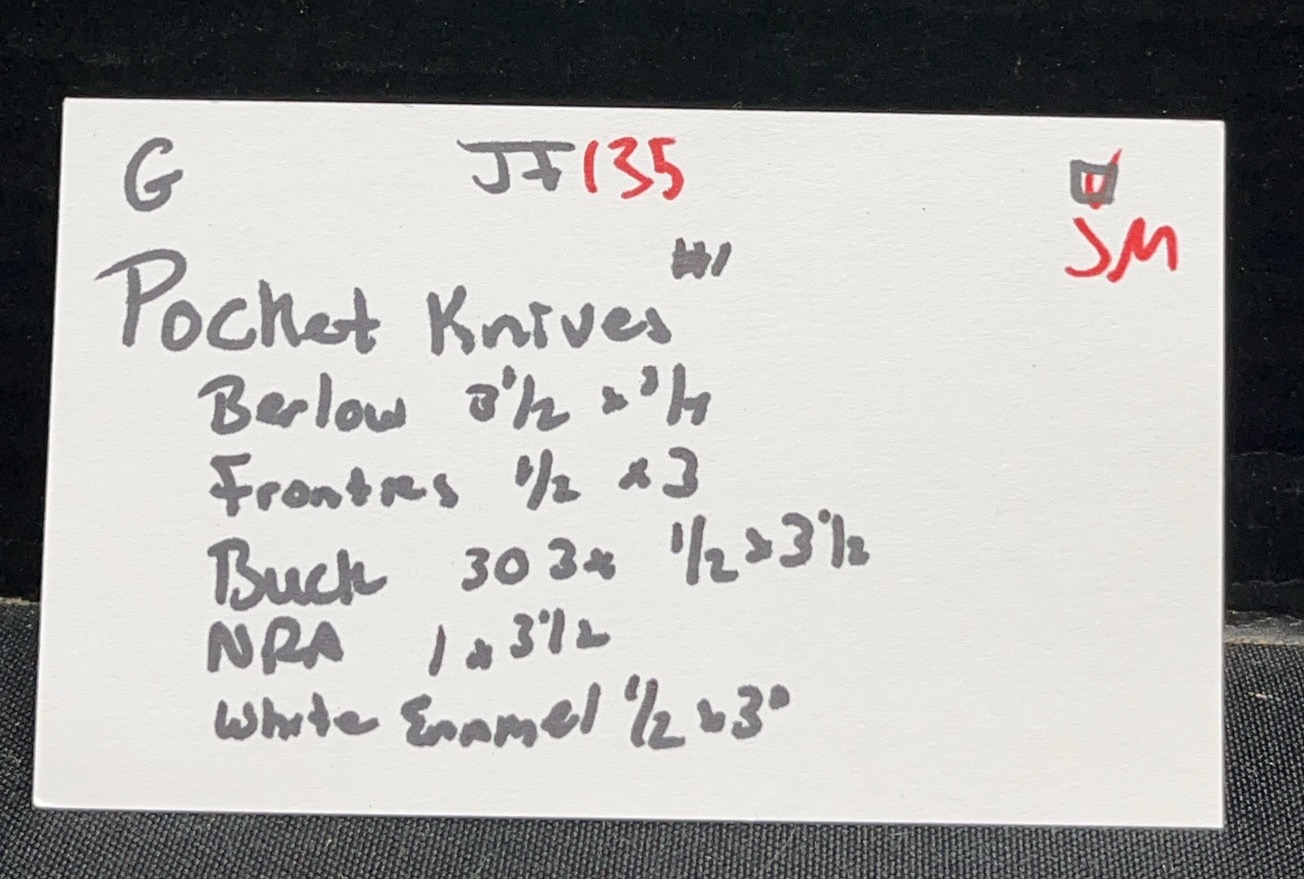 G JF135
SM
#1
Pocket Knives
Barlow 3 1/2 x 3/4
Fronties 1/2 x 3
Buck 303x 1/2 x 3 1/2
NRA 1 x 3 1/2
White Enamel 1/2 x 3"